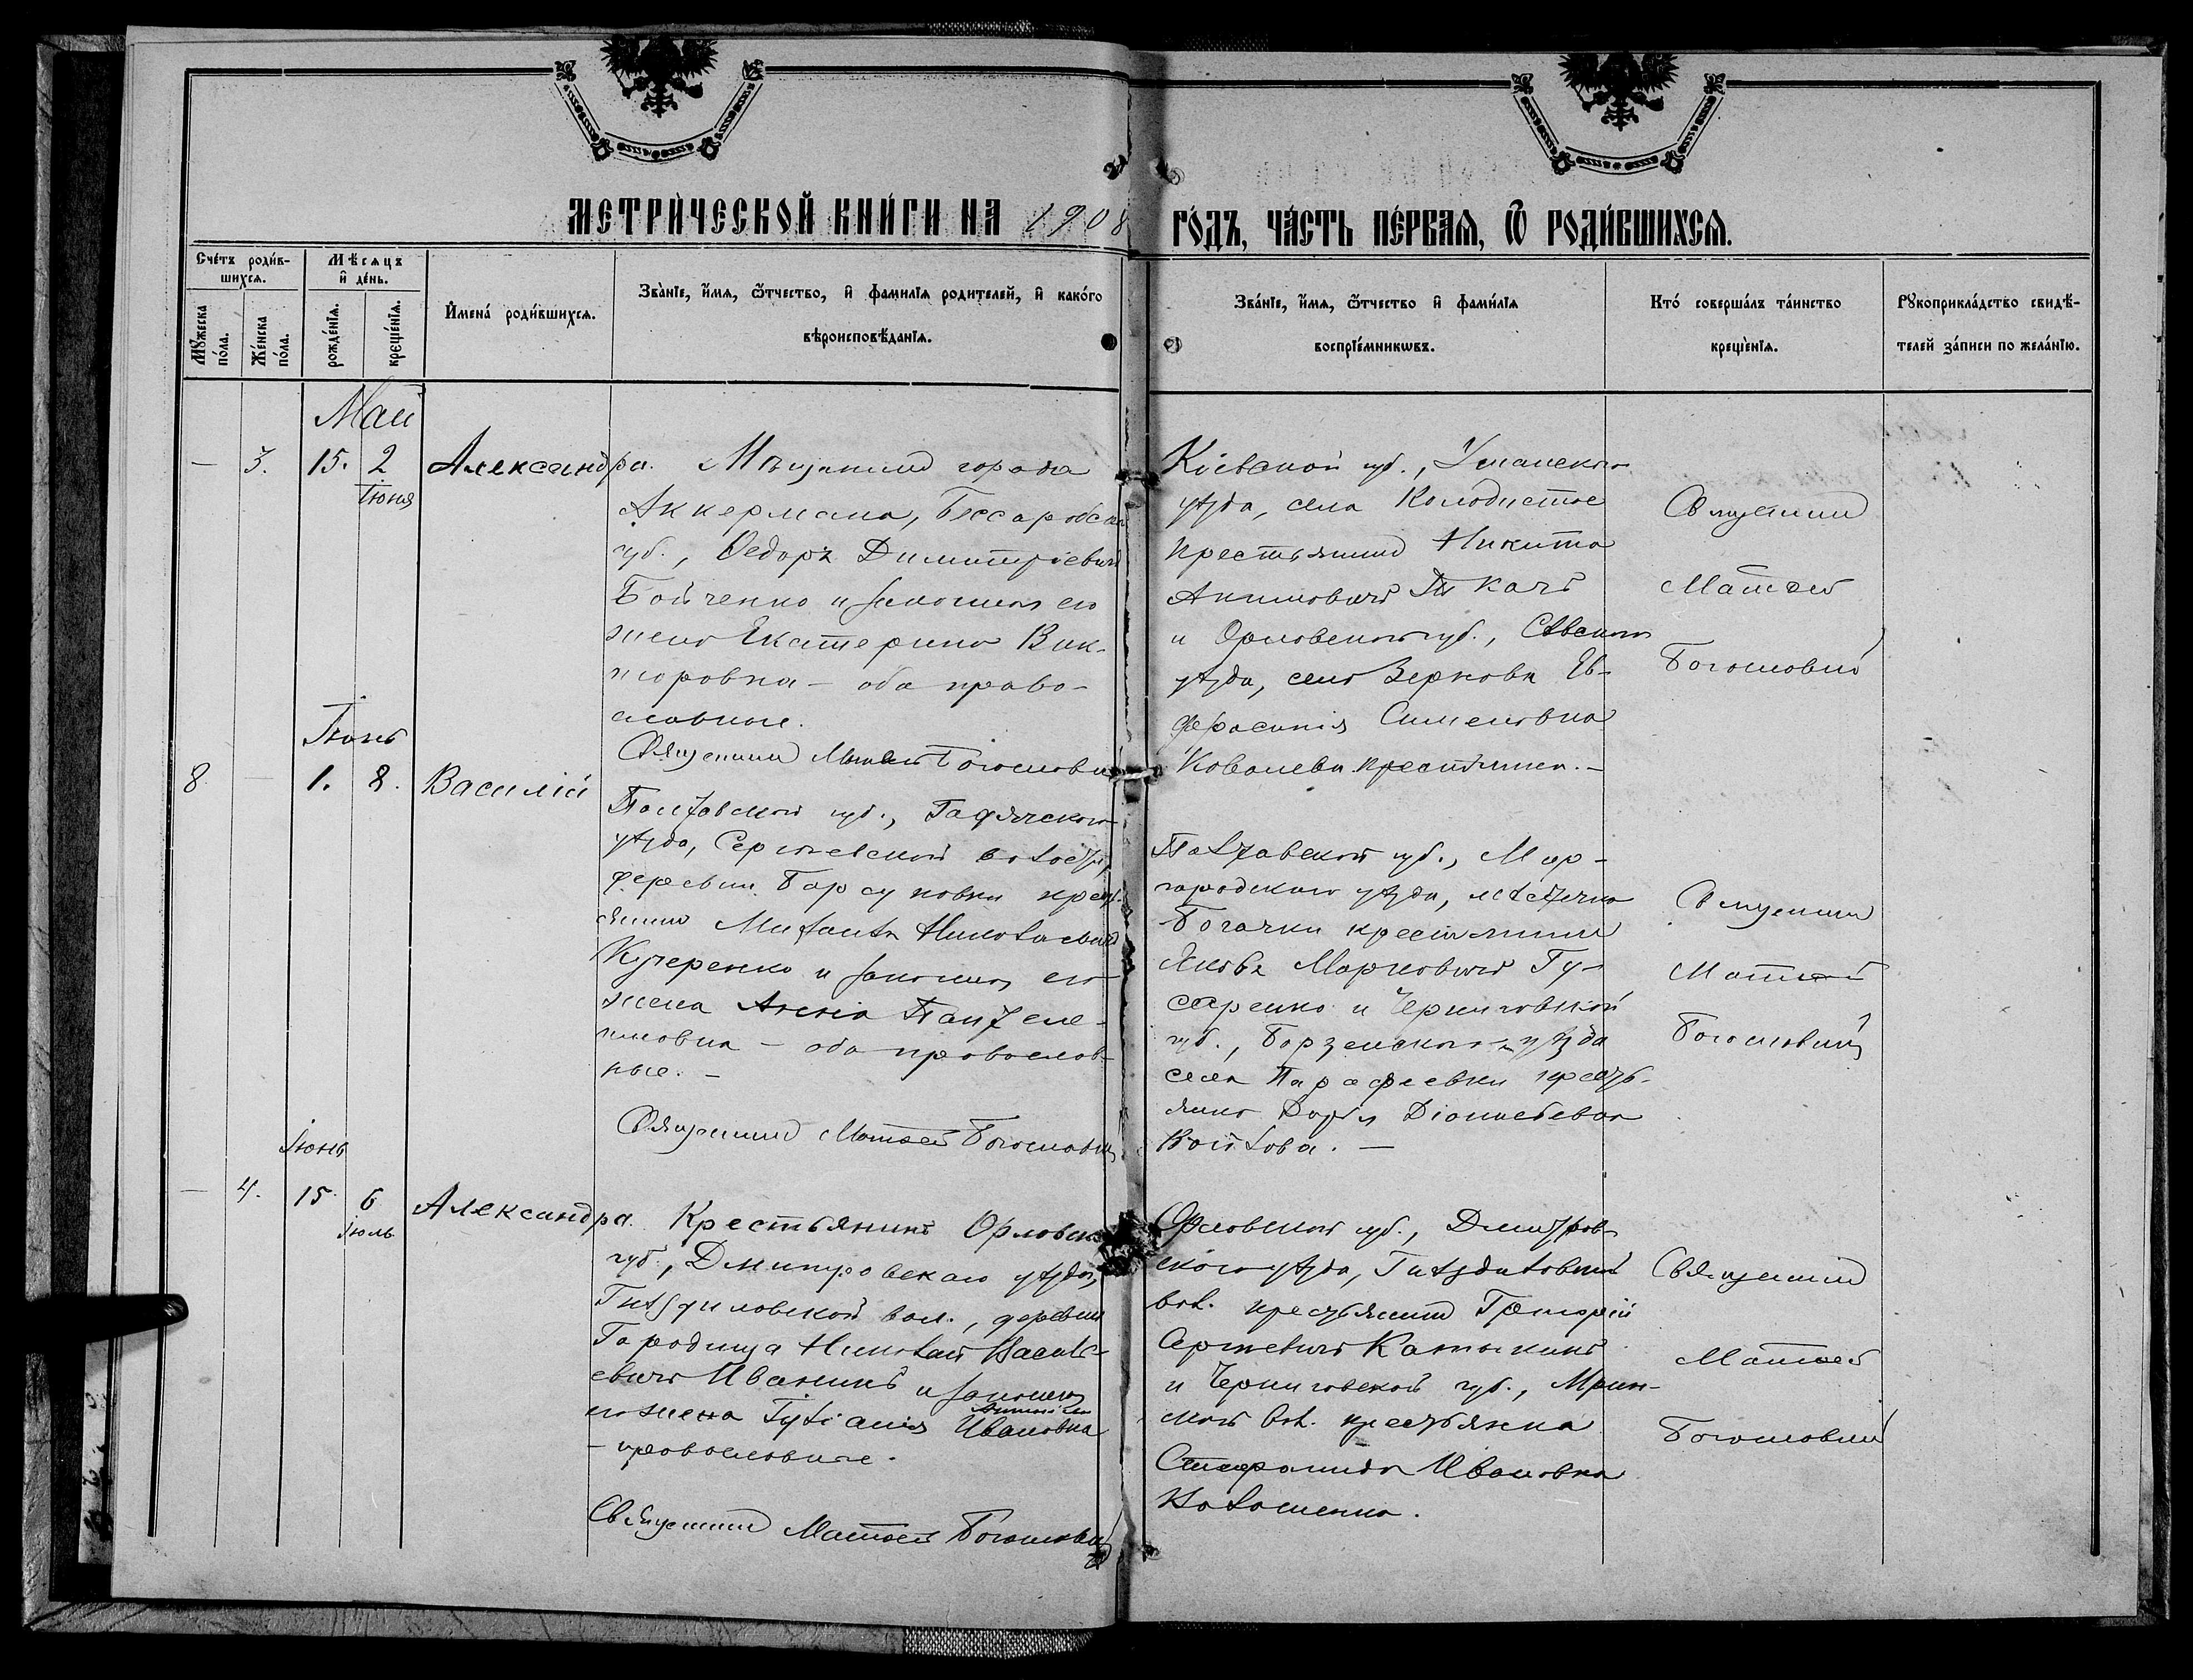 МЕТРИ́ЧЕСКОЙ КНИ́ГИ НА 1908
ГО́ДЪ, ЧА́СТЬ ПЕ́РВАѦ, Ѿ РОДИ́ВШИХСѦ.
Сче́тъ роди́в-
шихсѧ.
Мѣсѧцъ
и̂ де́нь.
Мꙋжеска
по́ла.
Же́нска
по́ла.
рожде́нїѧ.
креще́нїѧ.
И̂мена́ роди́вшихсѧ.
Зва́нїе, и҆́мѧ, ѻ҆́тчество, и̂ фами́лїѧ родителей, и̂ како́гѡ
вѣроисповѣ́данїѧ.
Зва́нїе, и҆́мѧ, ѻ҆́тчество и̂ фами́лїѧ
воспрїе́мникѡвъ.
Кто́ соверша́лъ та́инство
креще́нїѧ.
Рꙋкоприкла́дство свидѣ́-
телей за́писи по жела́нїю.
Май
— 3. 15. 2 Александра.
Іюня
Мѣщанинъ города
Аккермана, Бессарабской
губ., Ѳедоръ Димитріевичъ
Бойченко и законная его
жена Екатерина Вик-
торовна — оба право-
славные.
Священникъ Матѳей Богословскій
Кіевской губ., Уманскаго
уѣзда, села Колодистое
крестьянинъ Никита
Акимовичъ Ткачъ
и Орловской губ., Сѣвскаго
уѣзда, села Зернова Ев-
фросинія Симеоновна
Ковалева крестьянка. —
Священникъ
Матѳей
Богословскій
Іюнь
8. — 1. 8. Василій
Полтавской губ., Гадячскаго
уѣзда, Сергіевской волости,
деревни Барсуковки крест-
янинъ Михаилъ Николаевичъ
Кучеренко и законная его
жена Анна Пантеле-
имовна — оба православ-
ные. —
Священникъ Матѳей Богословскій
Полтавской губ., Мир-
городскаго уѣзда, мѣстечка
Богачки крестьянинъ
Яковъ Марковичъ Гу-
саренко и Черниговской
губ., Борзенскаго уѣзда
села Парафеевки кресть-
янка Дарья Діонисіевна
Войтова. —
Священникъ
Матѳей
Богословскій
Іюнь
— 4. 15. 6 Александра.
Іюль
Крестьянинъ Орловской
губ., Дмитровскаго уѣзда,
Гнѣздиловской вол., деревни
Городища Николай Василь-
евичъ Иванинъ и законная
его жена Ивановна
— православные.
Священникъ Матѳей Богословскій
Орловской губ., Дмитров-
скаго уѣзда, Гнѣздиловской
вол. крестьянинъ Григорій
Сергѣевичъ Катыкинъ
и Черниговской губ., Мрин-
ской вол. крестьянка
Ивановна
Священникъ
Матѳей
Богословскій